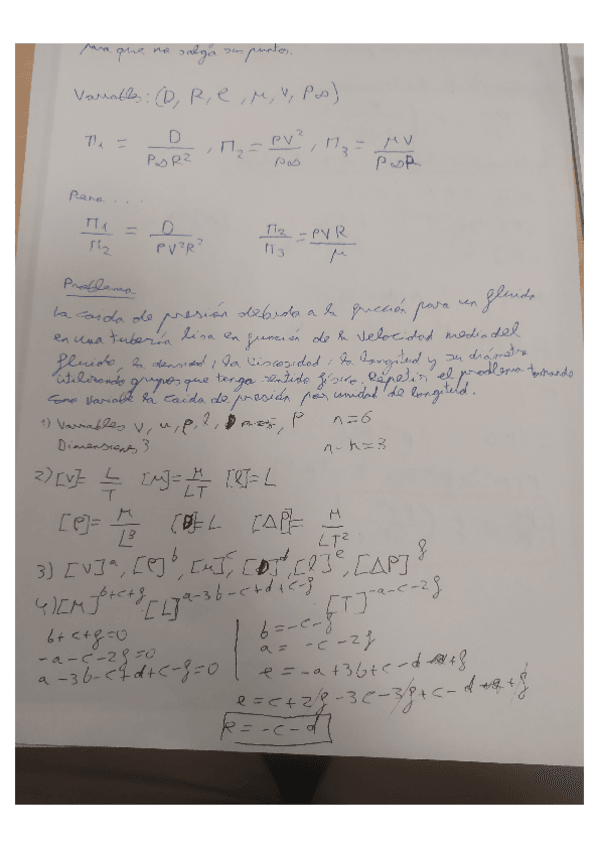 para que no salga sus puntos.
Variables: (D, R, ρ, μ, V, P∞)
Π1 = D / P∞R² , Π2 = ρV² / P∞ , Π3 = μV / P∞R
Pero . . .
Π1 / Π2 = D / ρV²R²   Π2 / Π3 = ρVR / μ
Problema
La caida de presión debida a la fricción para un fluido
en una tubería lisa en función de la velocidad media del
fluido, la densidad, la viscosidad, la longitud y su diámetro
utilizando grupos que tenga sentido físico. Repetir el problema tomando
como variable la caida de presión por unidad de longitud.
1) Variables v, μ, ρ, l, D, P   n=6
Dimensiones 3   n-k=3
2) [v]= L/T   [μ]= M/LT   [l]= L
[ρ]= M/L³   [D]= L   [ΔP]= M/LT²
3) [V]^a, [ρ]^b, [μ]^c, [D]^d, [l]^e, [ΔP]^f
4) [M]^b+c+f [L]^a-3b-c+d+e-f [T]^-a-c-2f
b+c+f=0   b=-c-f
-a-c-2f=0   a=-c-2f
a-3b-c+d+e-f=0   e=-a+3b+c-d+f
e=c+2f-3c-3f+c-d+f
e=-c-d